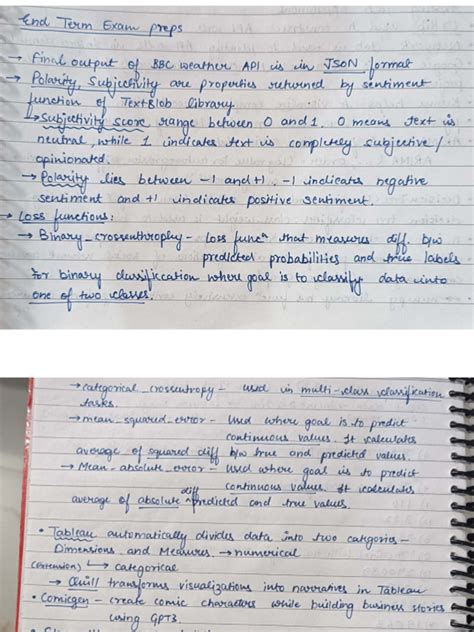 End Term Exam preps
→ Final output of BBC weather API is in JSON format
→ Polarity, Subjectivity are properties returned by sentiment
function of TextBlob library.
→ Subjectivity score range between 0 and 1. 0 means text is
neutral, while 1 indicates text is completely subjective /
opinionated.
→ Polarity lies between -1 and +1. -1 indicates negative
sentiment and +1 indicates positive sentiment.
→ Loss functions:
→ Binary_crossenthrophy - loss funcⁿ that measures diff. b/w
predicted probabilities and true labels
for binary classification where goal is to classify data into
one of two classes.
→ categorical_crossentropy - used in multi-class classification
tasks.
→ mean_squared_error - Used where goal is to predict
continuous values. It calculates
average of squared diff b/w true and predicted values.
→ Mean_absolute_error - Used where goal is to predict
continuous values. It calculates
average of absolute diff predicted and true values.
• Tableau automatically divides data into two categories -
Dimensions and Measures. → numerical
(extension) ↳ categorical
→ Quill transforms visualizations into narratives in Tableau
• Comicgen - create comic characters while building business stories
using GPT3.